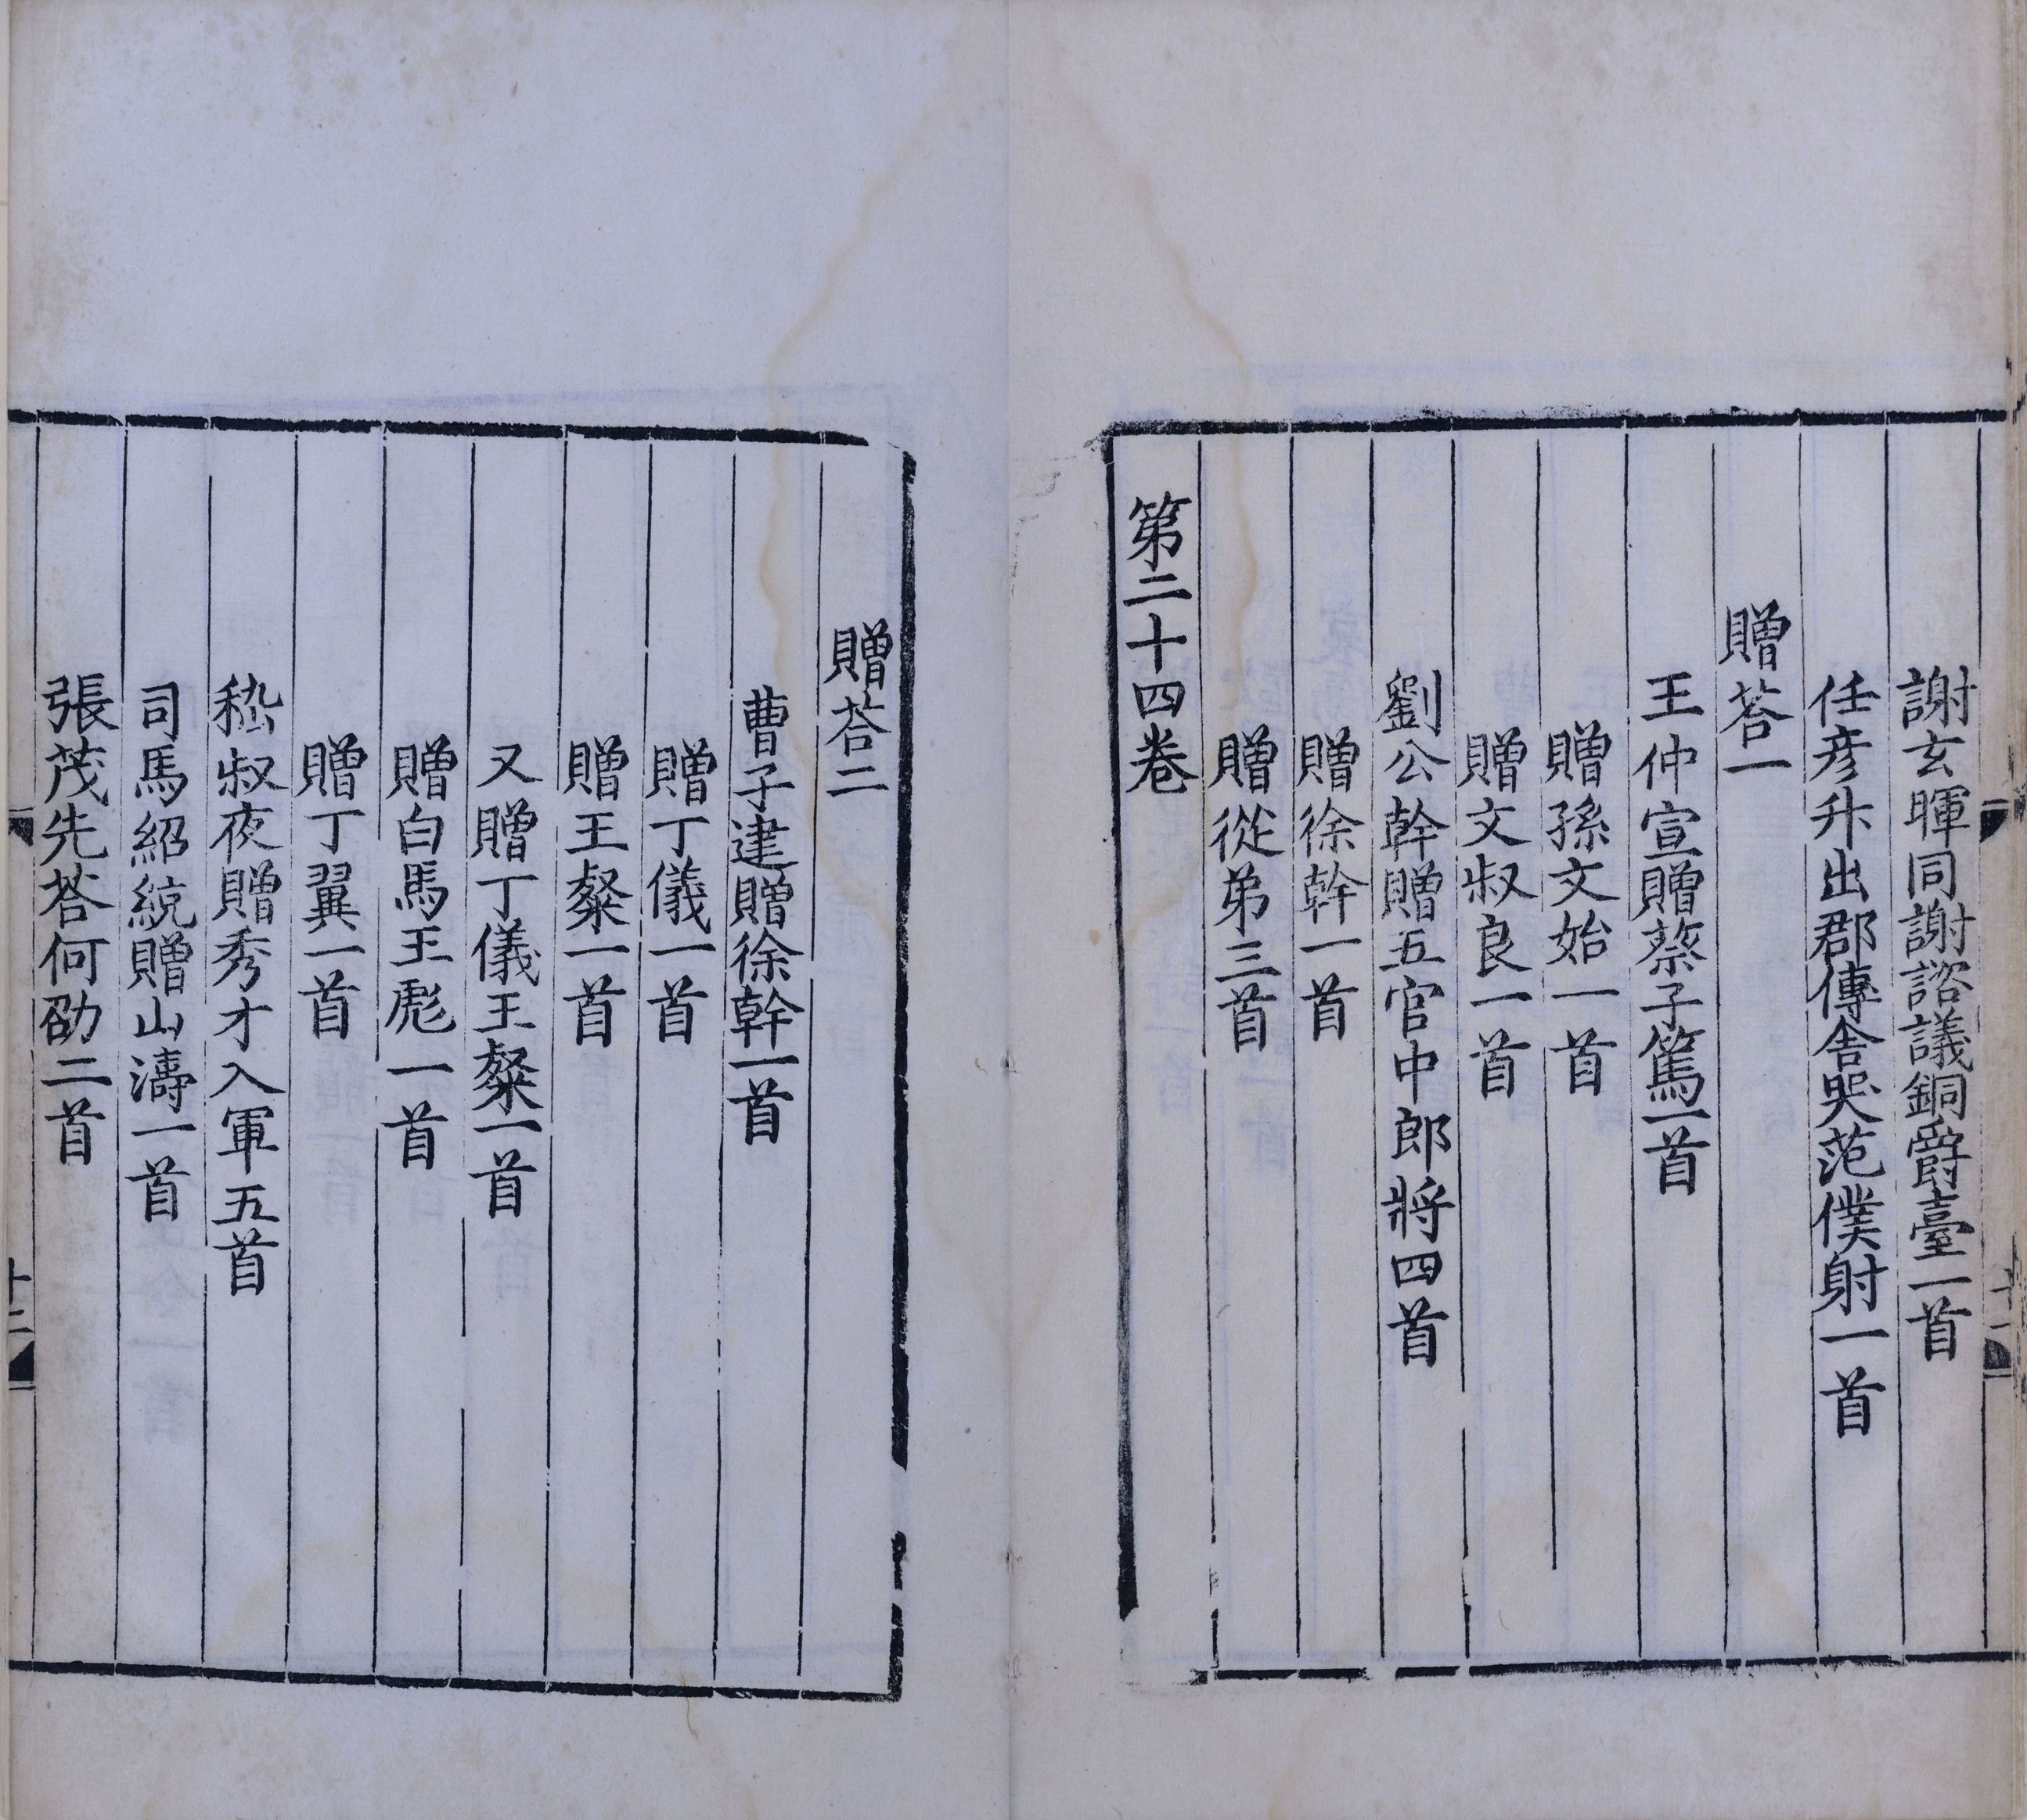 謝玄暉同謝諮議銅爵臺一首
任彦升出郡傳舎哭范僕射一首
贈荅一
王仲宣贈蔡子篤一首
贈孫文始一首
贈文叔良一首
劉公幹贈五官中郎將四首
贈徐幹一首
贈從弟三首
第二十四卷
贈荅二
曹子建贈徐幹一首
贈丁儀一首
贈王粲一首
又贈丁儀王粲一首
贈白馬王彪一首
贈丁翼一首
嵇叔夜贈秀才入軍五首
司馬紹統贈山濤一首
張茂先荅何劭二首
十二